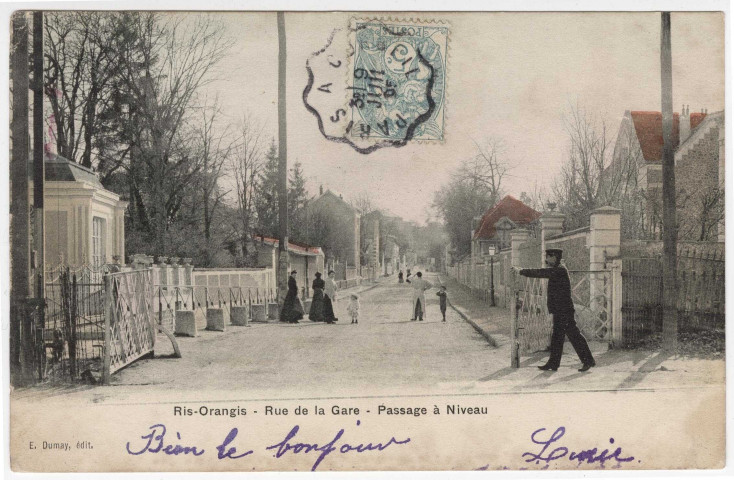 POSTES
PARIS A
9 JUIN 05
Ris-Orangis - Rue de la Gare - Passage à Niveau
E. Dumay, édit.
Bien le bonjour
Lucie